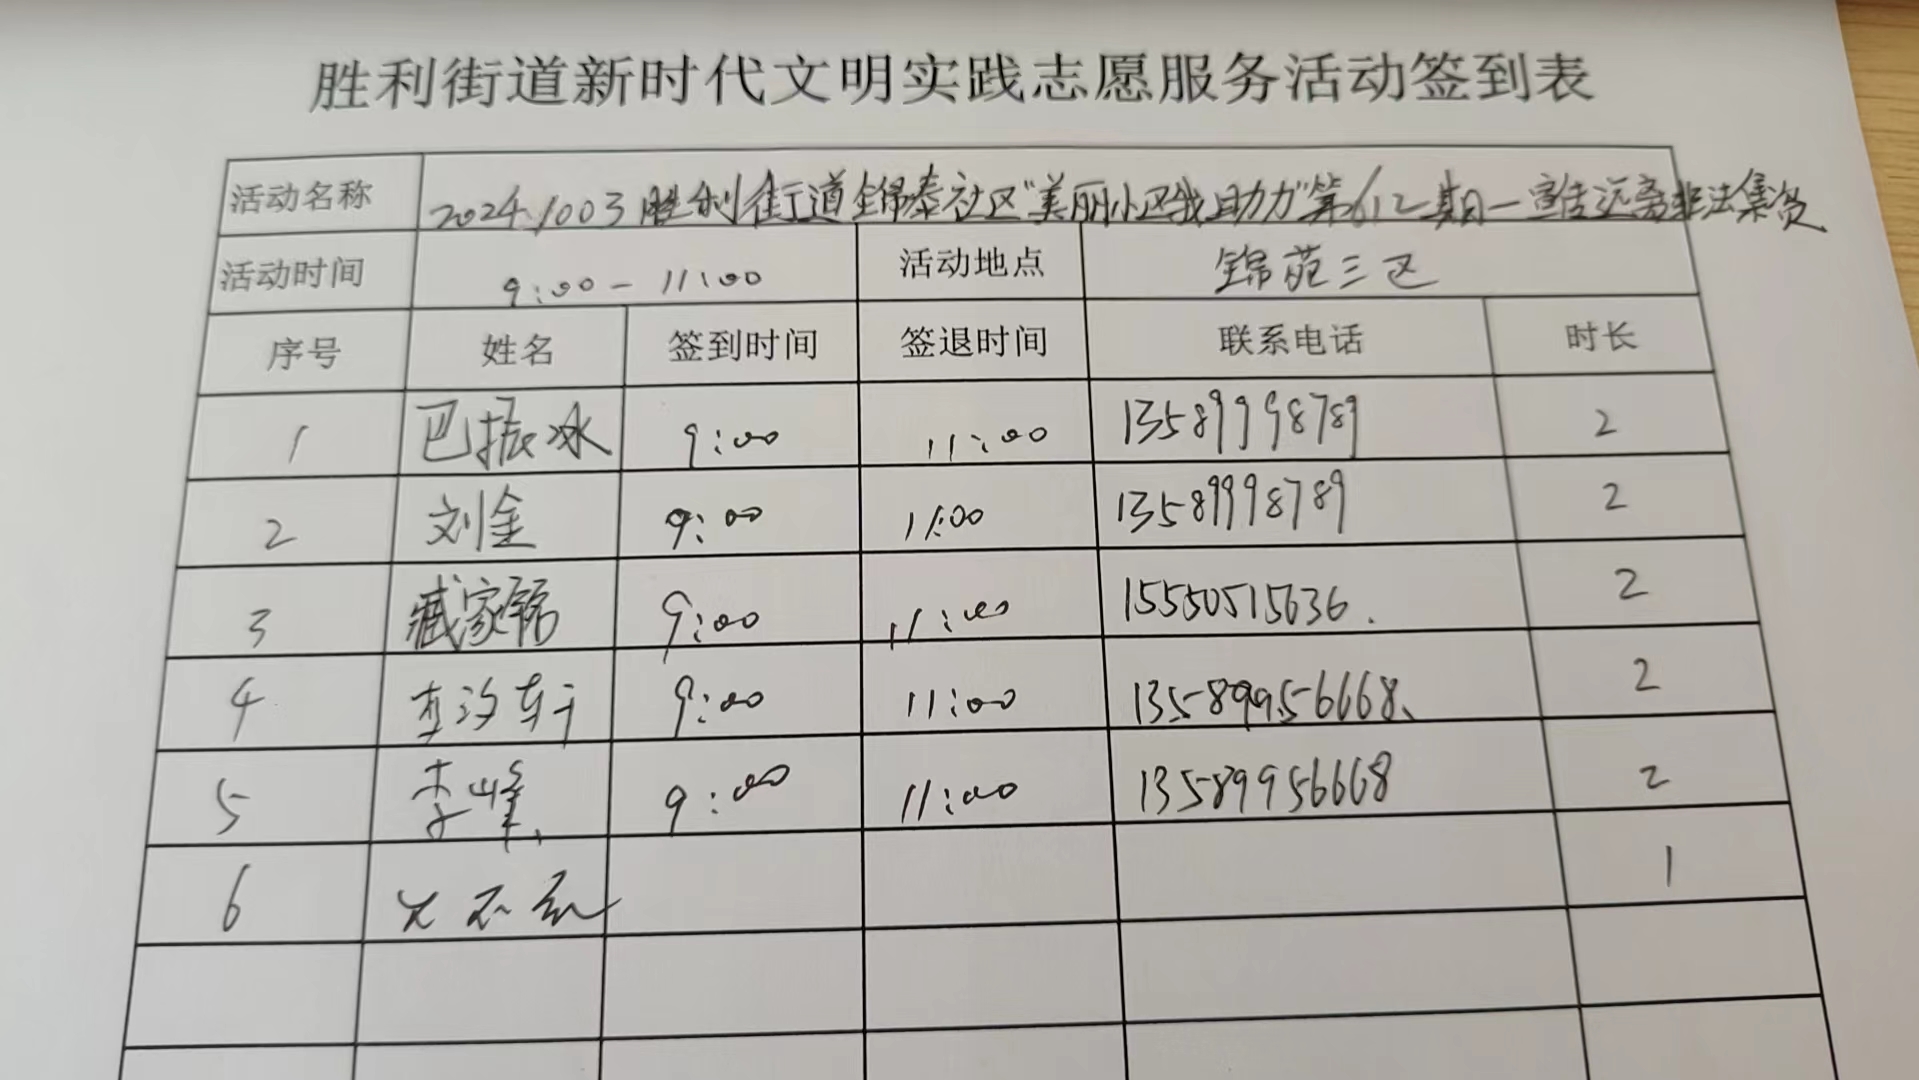 胜利街道新时代文明实践志愿服务活动签到表
活动名称 20241003胜利街道锦泰社区"美丽小区我助力"第612期一宣传远离非法集资
活动时间 9:00-11:00 活动地点 锦苑三区
序号 姓名 签到时间 签退时间 联系电话 时长
1 巴振冰 9:00 11:00 13589998789 2
2 刘金 9:00 11:00 13589998789 2
3 臧家锦 9:00 11:00 15550515636. 2
4 李汐轩 9:00 11:00 13589956668、 2
5 李峰、 9:00 11:00 13589956668 2
6 1